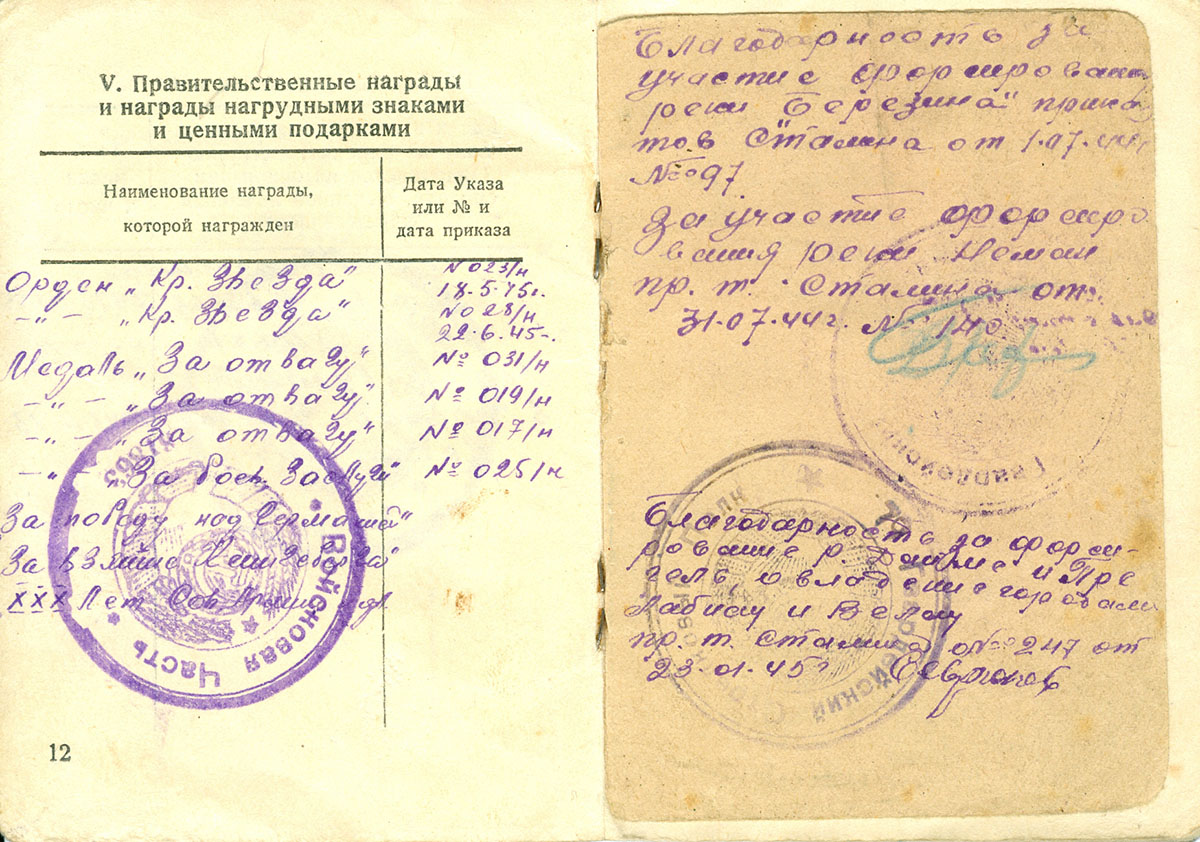 V. Правительственные награды
и награды нагрудными знаками
и ценными подарками
Наименование награды,
которой награжден
Дата Указа
или № и
дата приказа
Орден „Кр. Звезда"
N 023/н
18.5.45г.
—"— „Кр. Звезда"
N 028/н
22.6.45-.
Медаль „За отвагу"
№ 031/н
—"— „За отвагу"
№ 019/н
—"— „За отвагу"
№ 017/н
—"— „За боев. Заслуги"
№ 025/н
За победу над Германией"
За взятие Кенигсберга
XXX Лет Сов.
Войсковая Часть
12
Благодарность за
участие форсирован
реки Березина" прика
тов Сталина от 1.07.44г
№ 97
За участие форсиро
вания реки Неман
пр. т. Сталина от
31.07.44г. №
Благодарность за форси-
рование р. Дайме и Пре
гель овладение городами
Лабиау и Велау
пр. т. Сталина № 247 от
23.01.45г